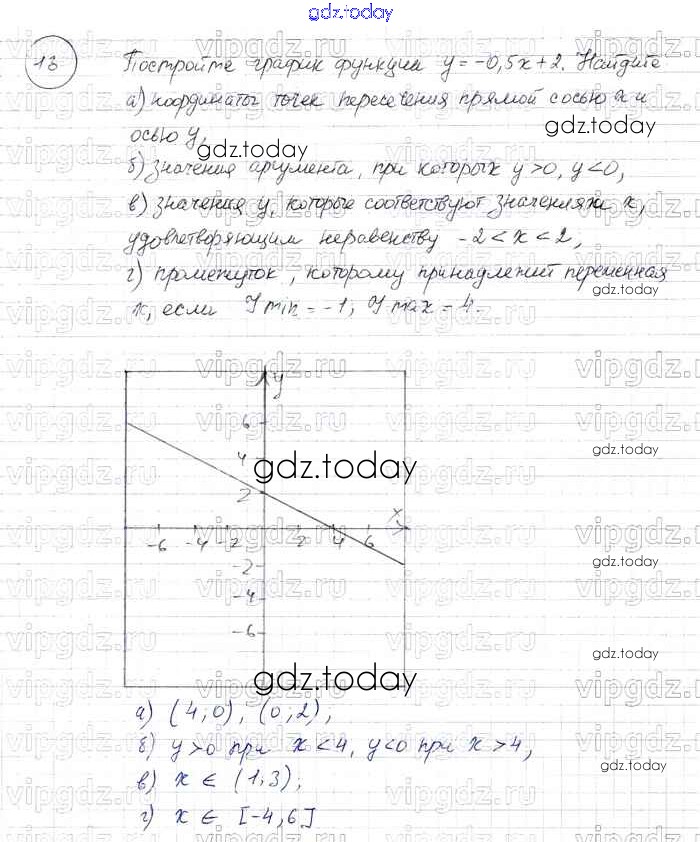 gdz.today
13 Постройте график функции y = -0,5x + 2. Найдите
а) координаты точек пересечения прямой с осью x и
осью y,
gdz.today
gdz.today
б) значения аргумента, при которых y>0, y<0,
в) значения y, которые соответствуют значениям x,
удовлетворяющим неравенству -2 < x < 2,
г) промежуток, которому принадлежит переменная
gdz.today
x, если y min = -1; y max = 4.
vipgdz.ru vipgdz.ru vipgdz.ru vipgdz.ru
y
6
4
gdz.today
gdz.today
2
x
-6 -4 -2 2 4 6
gdz.today
-2
-4
-6
gdz.today
gdz.today
а) (4; 0), (0; 2);
б) y>0 при x<4, y<0 при x>4,
gdz.today
в) x ∈ (1; 3);
г) x ∈ [-4, 6]